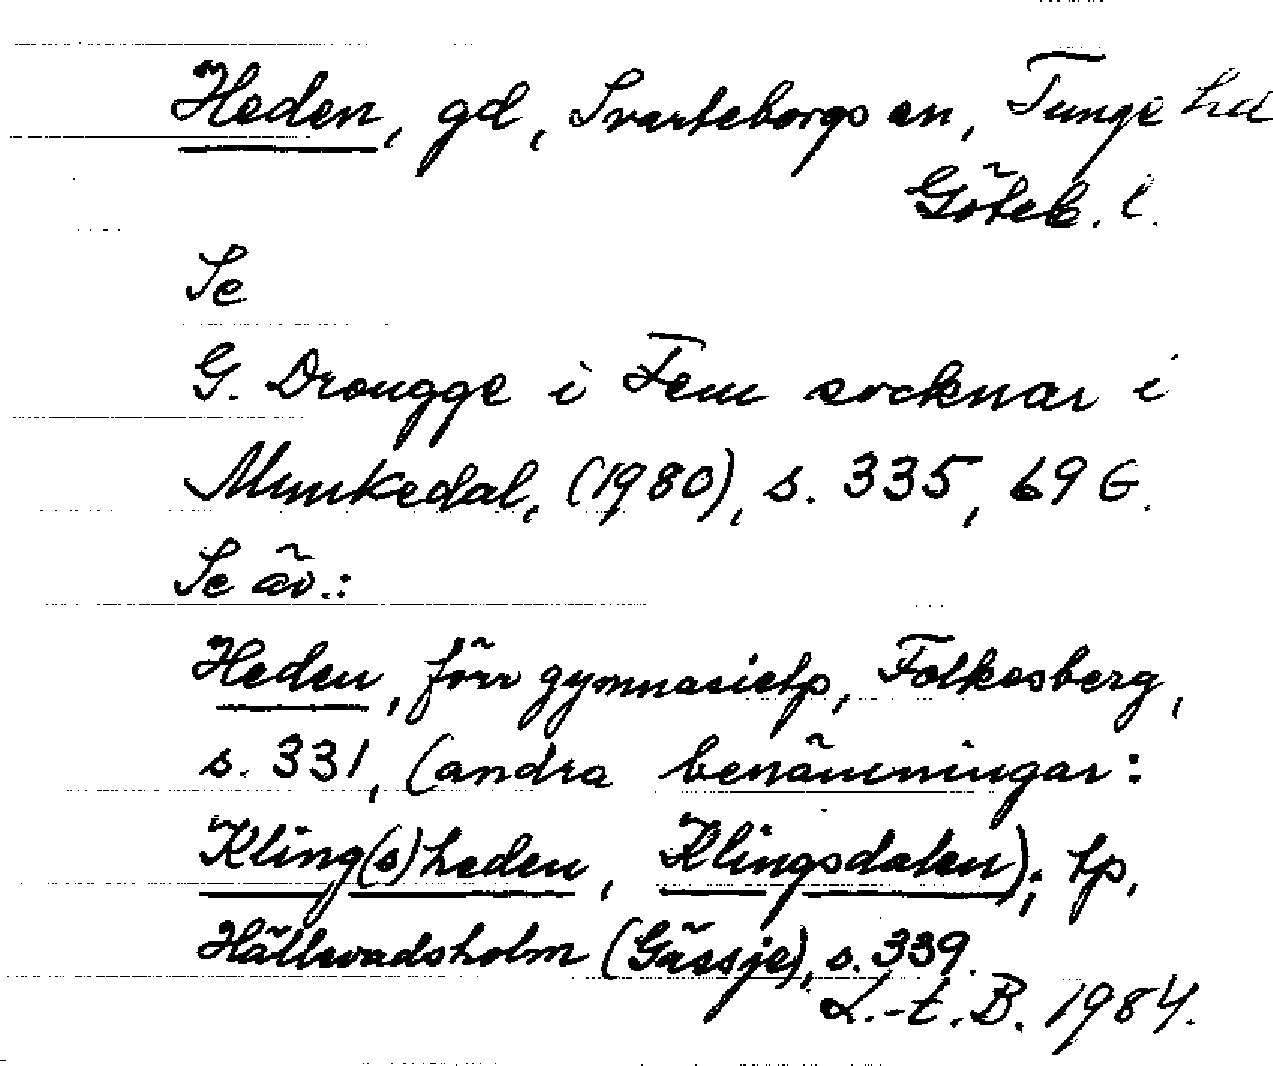 Heden, gd, Svarteborgs sn, Tunge hd
Göteb. l.
Se
G. Drougge i Fem socknar i
Munkedal, (1980), s. 335, 69 G.
Se äv.:
Heden, förr gymnasietp, Folkesberg,
s. 331, (andra benämningar:
Kling(s)heden, Klingsdalen); tp,
Hällevadsholm (Gässje), s. 339.
L.-t. B. 1984.